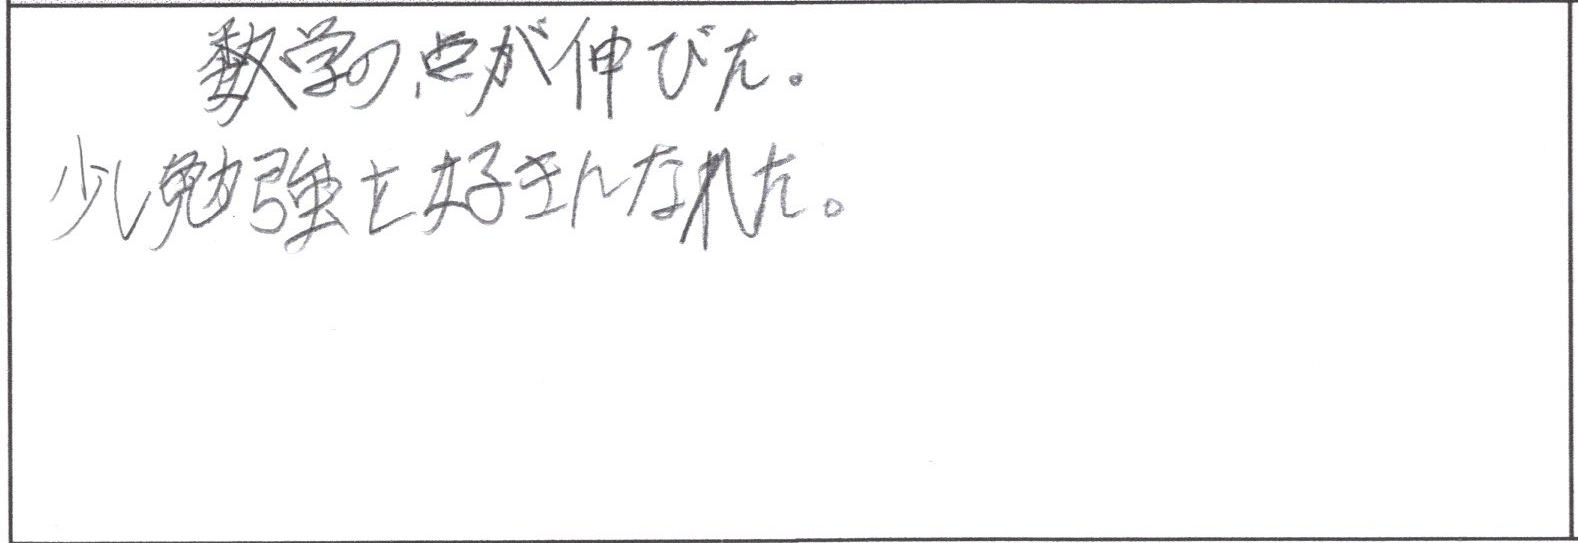 数学の点が伸びた。
少し勉強を好きになれた。